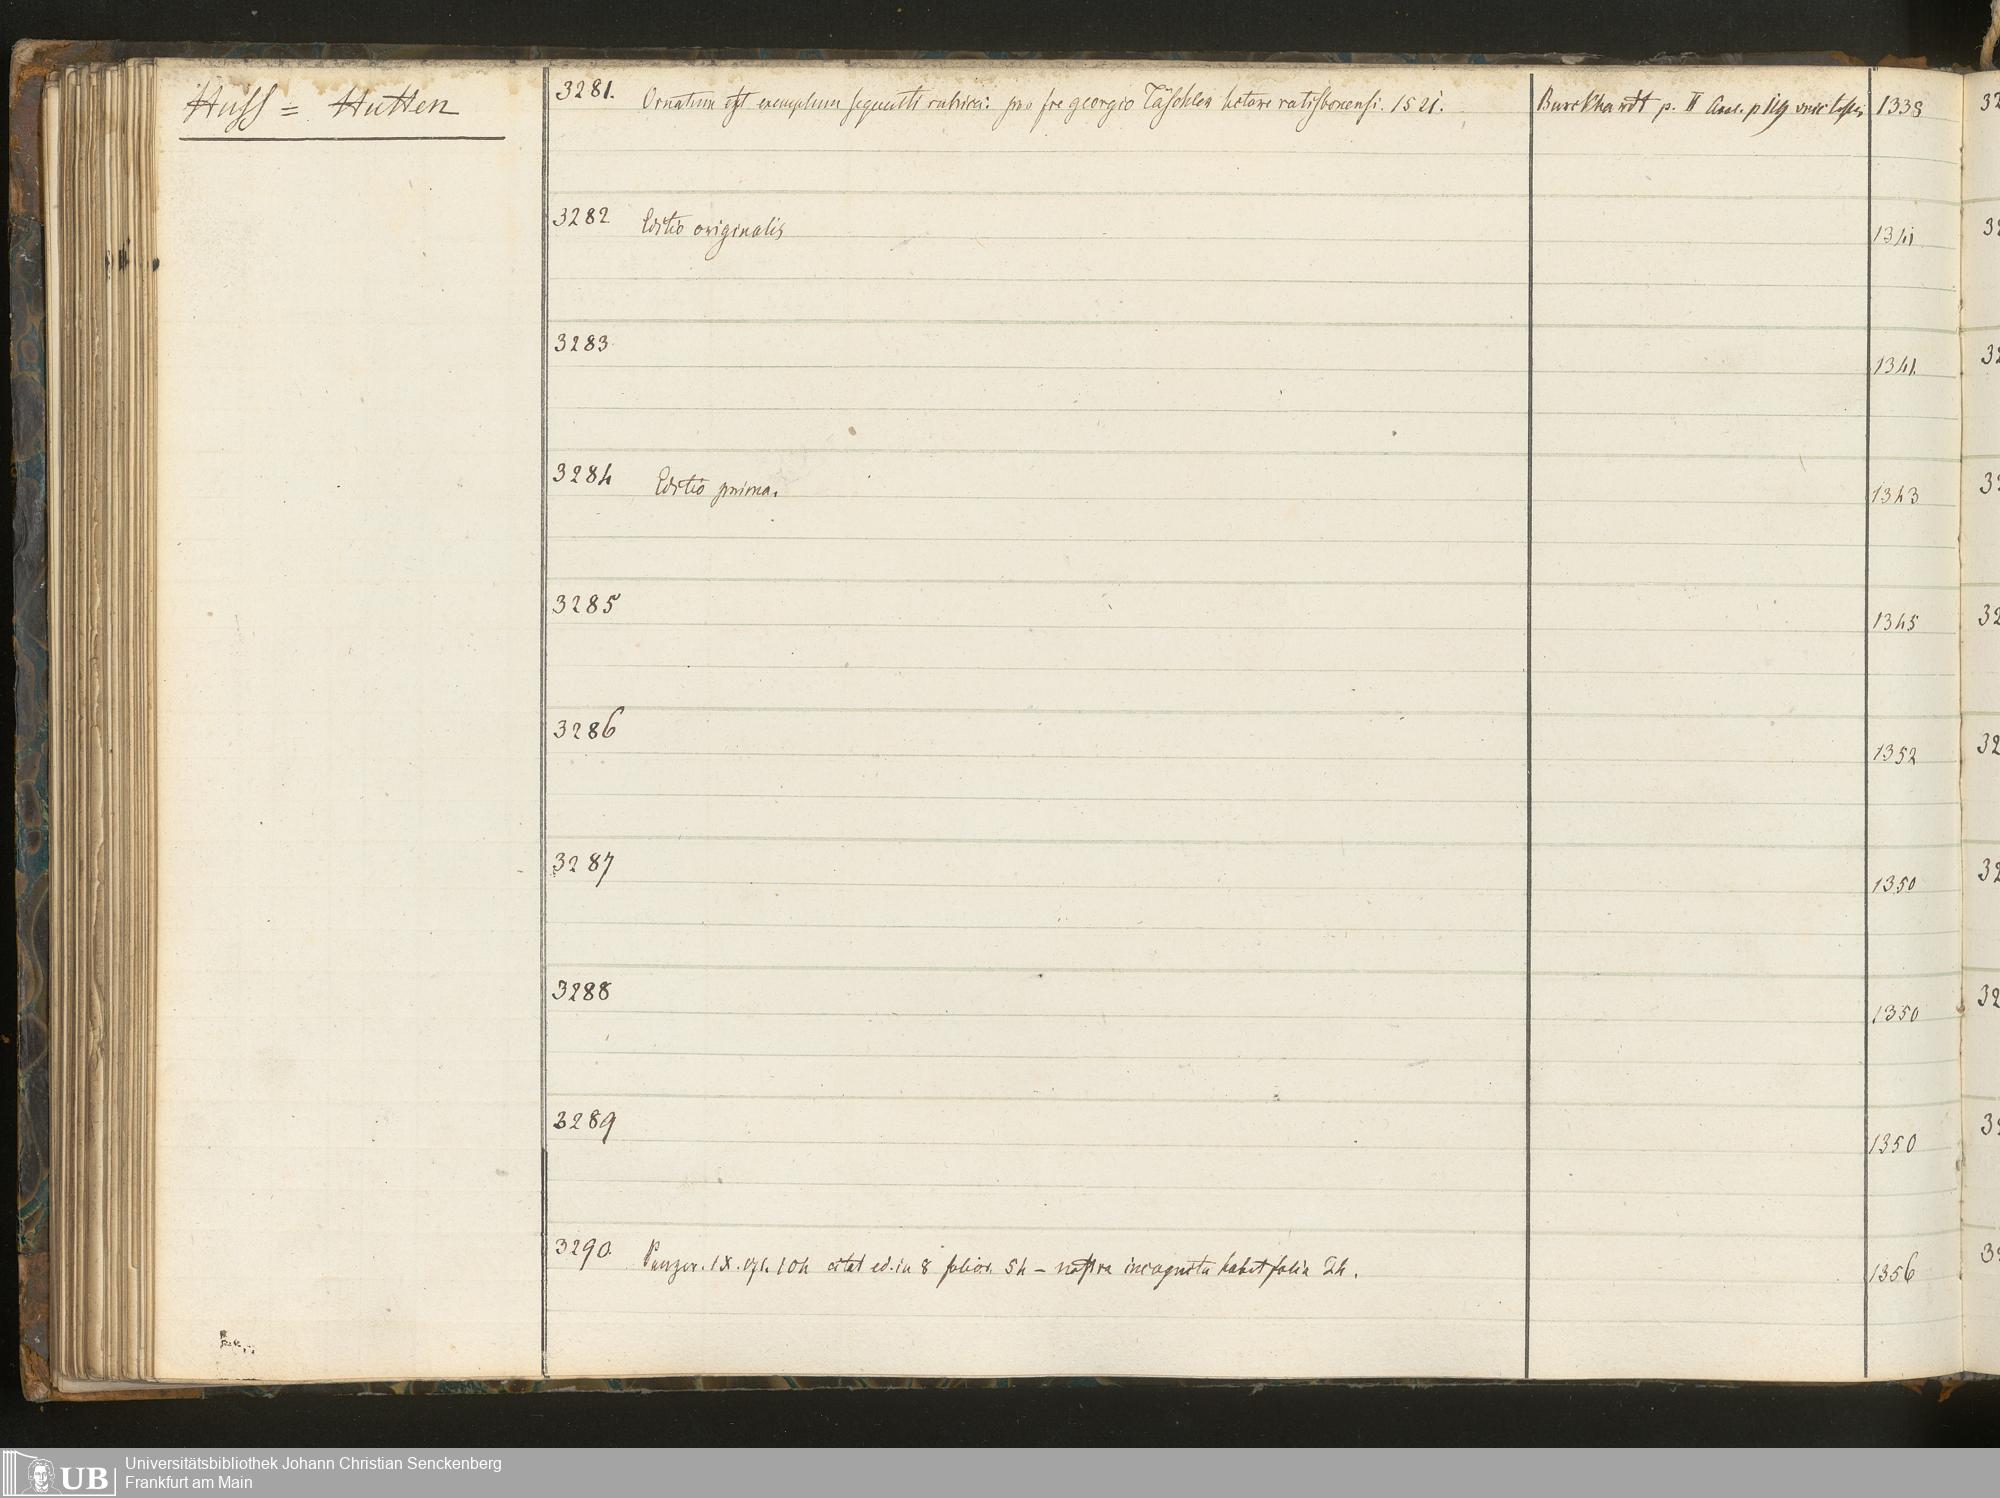 Huss = Hutten
3281. Ornatum est exemplum sequenti rubrica: pro fre georgio Täschler lectore ratisbonensi. 1521. Burckhardt p. II 1338
3282 Editio originalis 1341
3283 1341
3284 Editio prima. 1343
3285 1345
3286 1352
3287 1350
3288 1350
3289 1350
3290. Panzer. IX. 104 citat ed. in 8 folior. 54 – nostra incognita habet folia 24. 1356
UB
Universitätsbibliothek Johann Christian Senckenberg
Frankfurt am Main